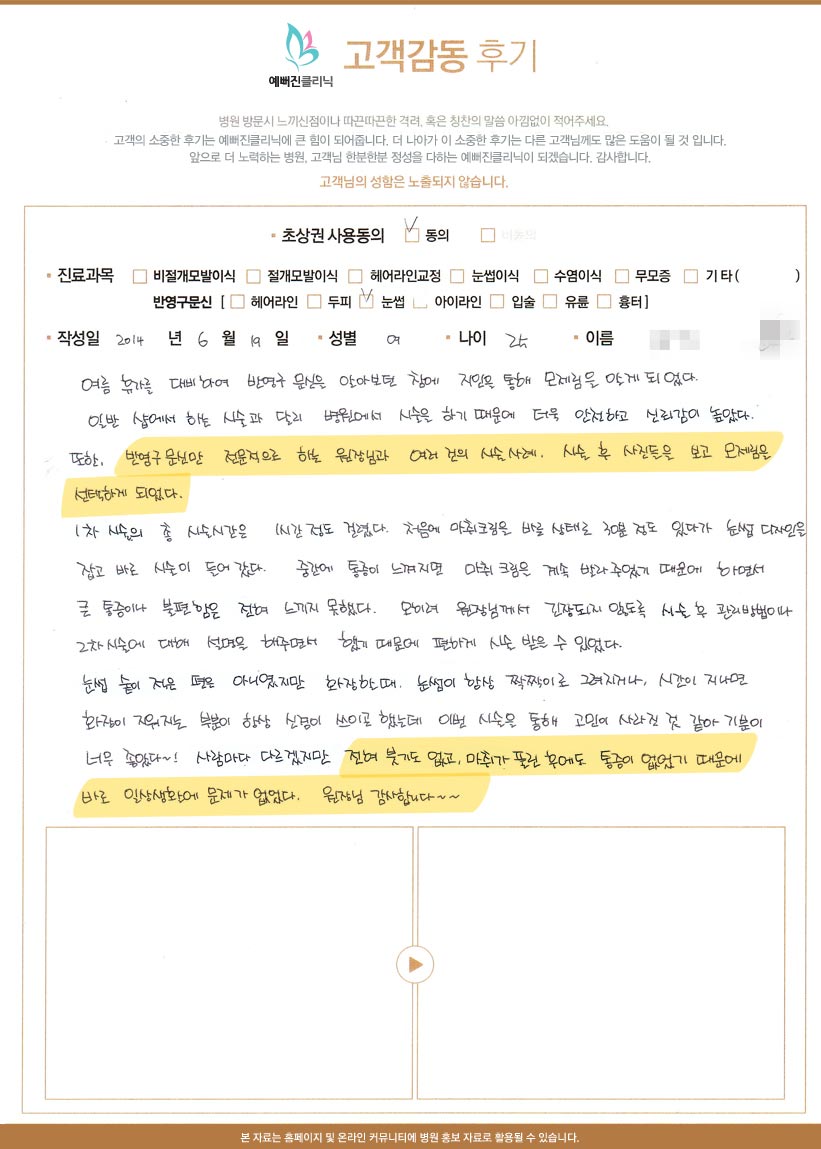 예뻐진클리닉
고객감동 후기
병원 방문시 느끼신점이나 따끈따끈한 격려, 혹은 칭찬의 말씀 아낌없이 적어주세요.
고객의 소중한 후기는 예뻐진클리닉에 큰 힘이 되어줍니다. 더 나아가 이 소중한 후기는 다른 고객님께도 많은 도움이 될 것 입니다.
앞으로 더 노력하는 병원, 고객님 한분한분 정성을 다하는 예뻐진클리닉이 되겠습니다. 감사합니다.
고객님의 성함은 노출되지 않습니다.
초상권 사용동의 동의 비동의
진료과목 비절개모발이식 절개모발이식 헤어라인교정 눈썹이식 수염이식 무모증 기타( )
반영구문신 [ 헤어라인 두피 눈썹 아이라인 입술 유륜 흉터 ]
작성일 2014 년 6 월 19 일 성별 여 나이 25 이름
여름 휴가를 대비하여 반영구 문신을 알아보던 참에 지인을 통해 모제림을 알게 되었다.
일반 샵에서 하는 시술과 달리 병원에서 시술을 하기 때문에 더욱 안전하고 신뢰감이 높았다.
또한, 반영구 문신만 전문적으로 하는 원장님과 여러 건의 시술사례, 시술 후 사진들을 보고 모제림을
선택하게 되었다.
1차 시술의 총 시술시간은 1시간 정도 걸렸다. 처음에 마취크림을 바를 상태로 30분 정도 있다가 눈썹 디자인을
잡고 바로 시술이 들어 갔다. 중간에 통증이 느껴지면 마취 크림은 계속 발라주었기 때문에 하면서
큰 통증이나 불편함은 전혀 느끼지 못했다. 오히려 원장님께서 긴장되지 않도록 시술 후 관리방법이나
2차시술에 대해 설명을 해주면서 했기 때문에 편하게 시술 받은 수 있었다.
눈썹 숱이 적은 편은 아니였지만 화장할때, 눈썹이 항상 짝짝이로 그려지거나, 시간이 지나면
화장이 지워지는 부분이 항상 신경이 쓰이곤 했는데 이번 시술은 통해 고민이 사라진 것 같아 기분이
너무 좋았다~! 사람마다 다르겠지만 전혀 붓기도 없고, 마취가 풀린 후에도 통증이 없었기 때문에
바로 일상생활에 문제가 없었다. 원장님 감사합니다~~
본 자료는 홈페이지 및 온라인 커뮤니티에 병원 홍보 자료로 활용될 수 있습니다.